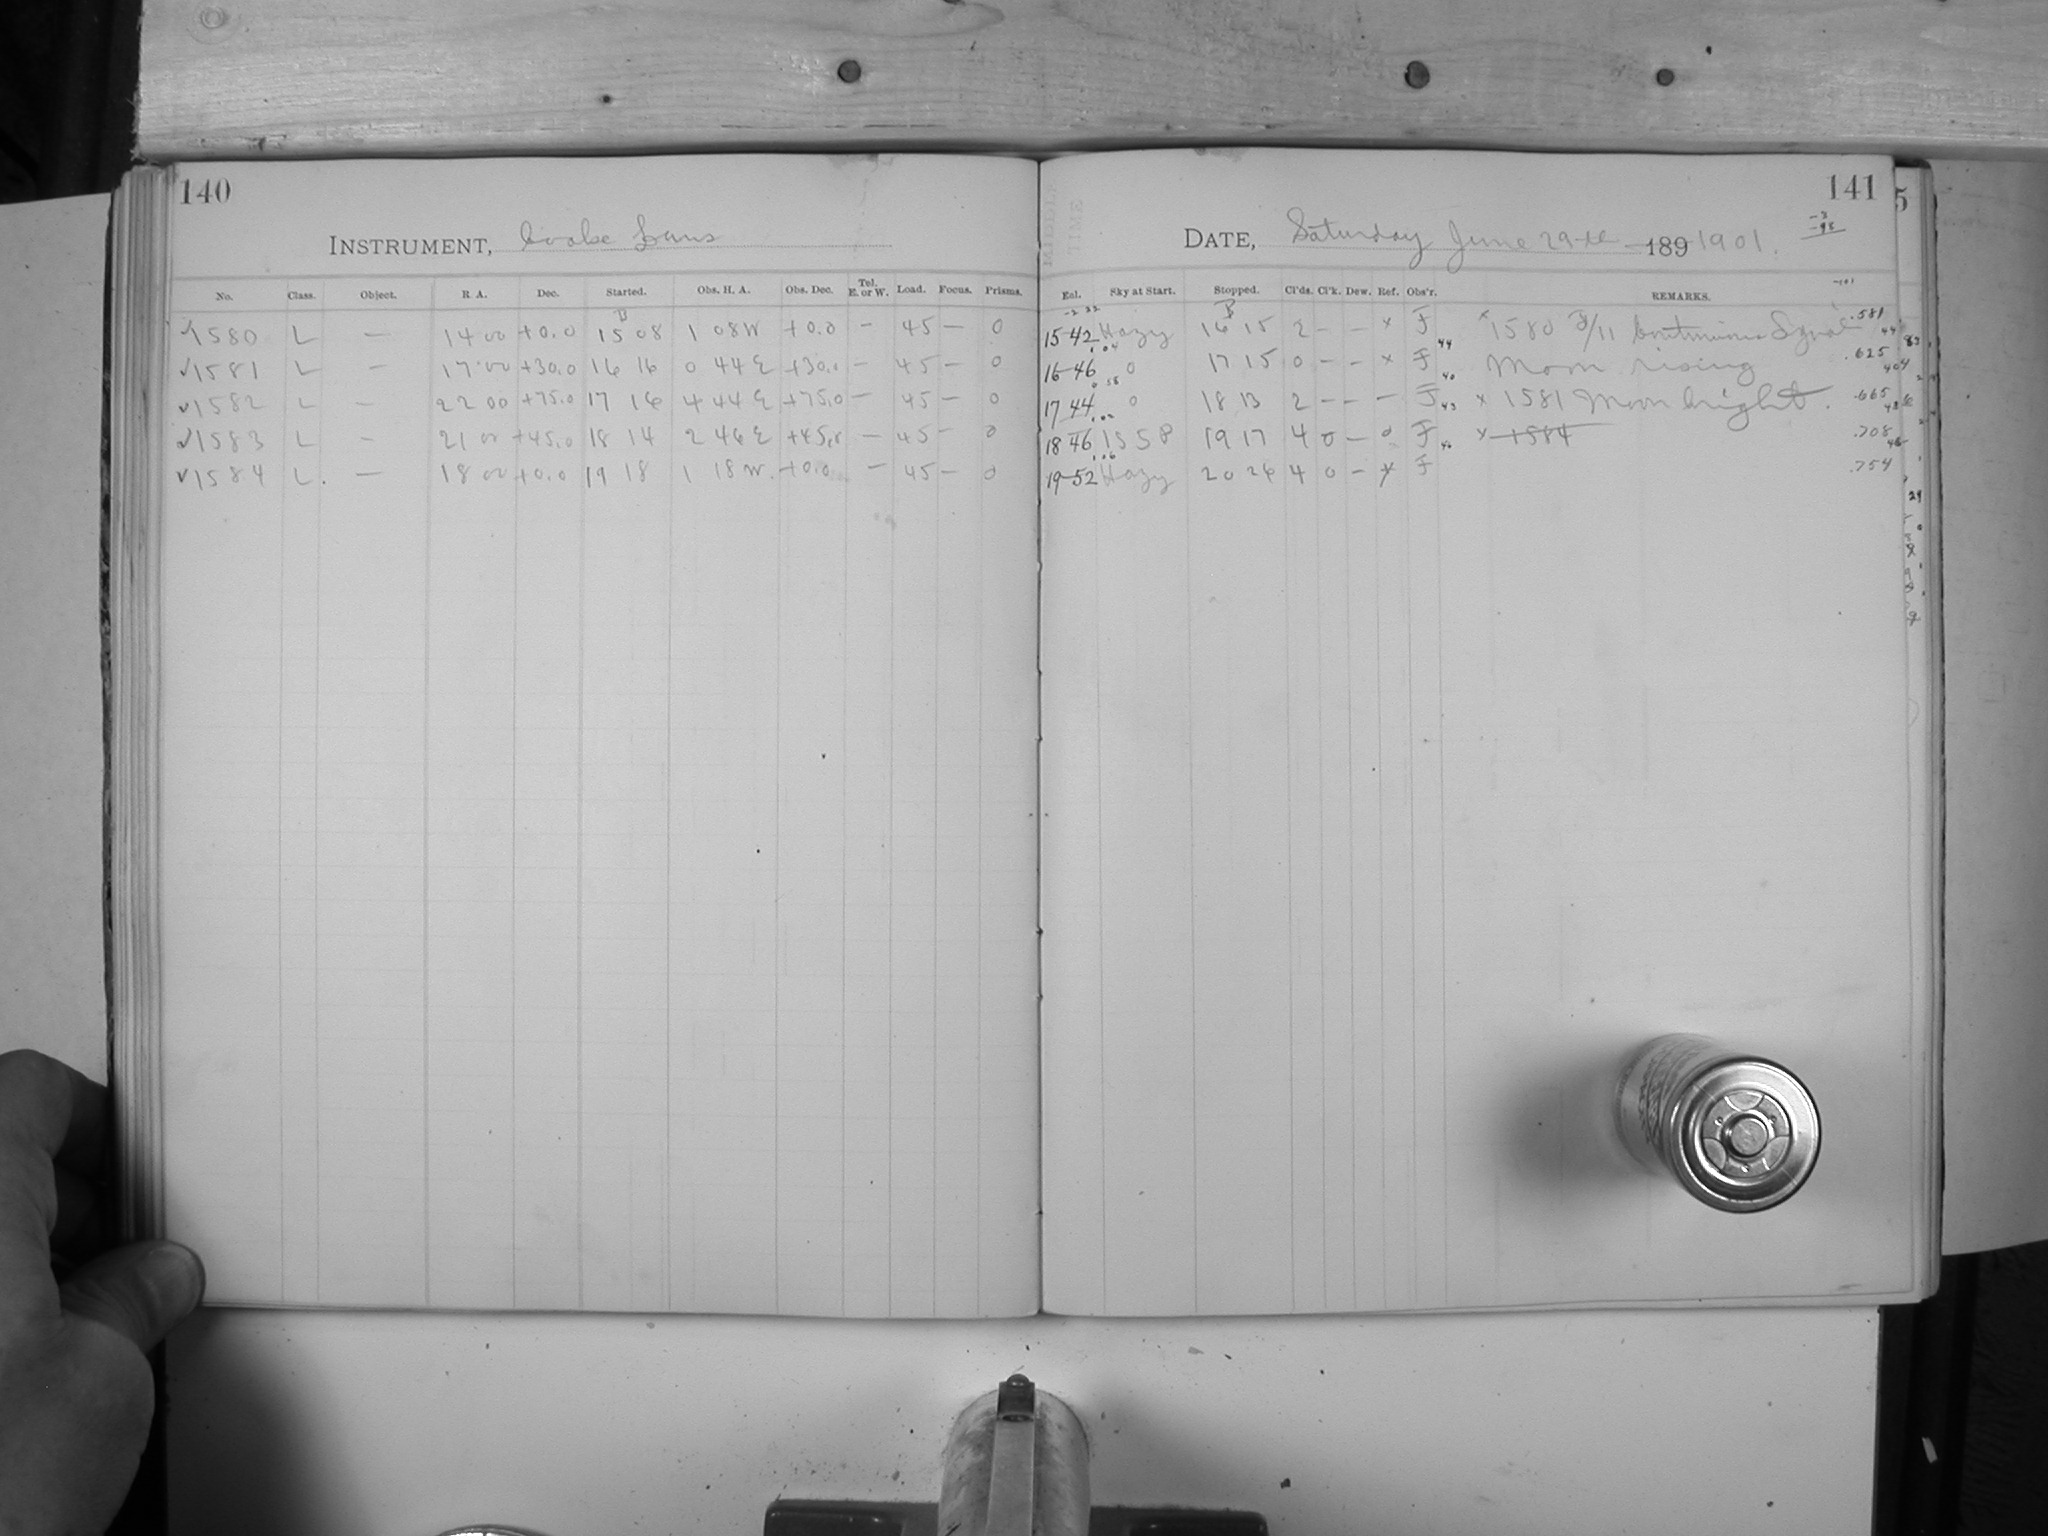 140
INSTRUMENT, Cooke Lens
No. Class. Object. R. A. Dec. Started. Obs. H. A. Obs. Dec. Tel. E. or W. Load. Focus. Prisms.
✓1580 L — 14 00 +0.0 15 08 1 08 W +0.0 — 45 — 0
✓1581 L — 17 00 +30.0 16 16 0 44 E +30.0 — 45 — 0
✓1582 L — 22 00 +75.0 17 16 4 44 E +75.0 — 45 — 0
✓1583 L — 21 00 +45.0 18 14 2 46 E +45.0 — 45 — 0
✓1584 L. — 18 00 +0.0 19 18 1 18 W. +0.0 — 45 — 0
141
DATE, Saturday June 29th 189 1901.
Sky at Start. Stopped. Cl'ds. Cl'k. Dew. Ref. Obs'r. REMARKS.
15-42 Hazy 16 15 2 — — x F x 1580 Continuous .581
16-46 0 17 15 0 — — x F Moon rising .625
17 44 0 18 13 2 — — — F x 1581 Moon bright. .665
18 46 1 S S P 19 17 4 0 — 0 F x 1584 .708
19-52 Hazy 20 26 4 0 — x F .754